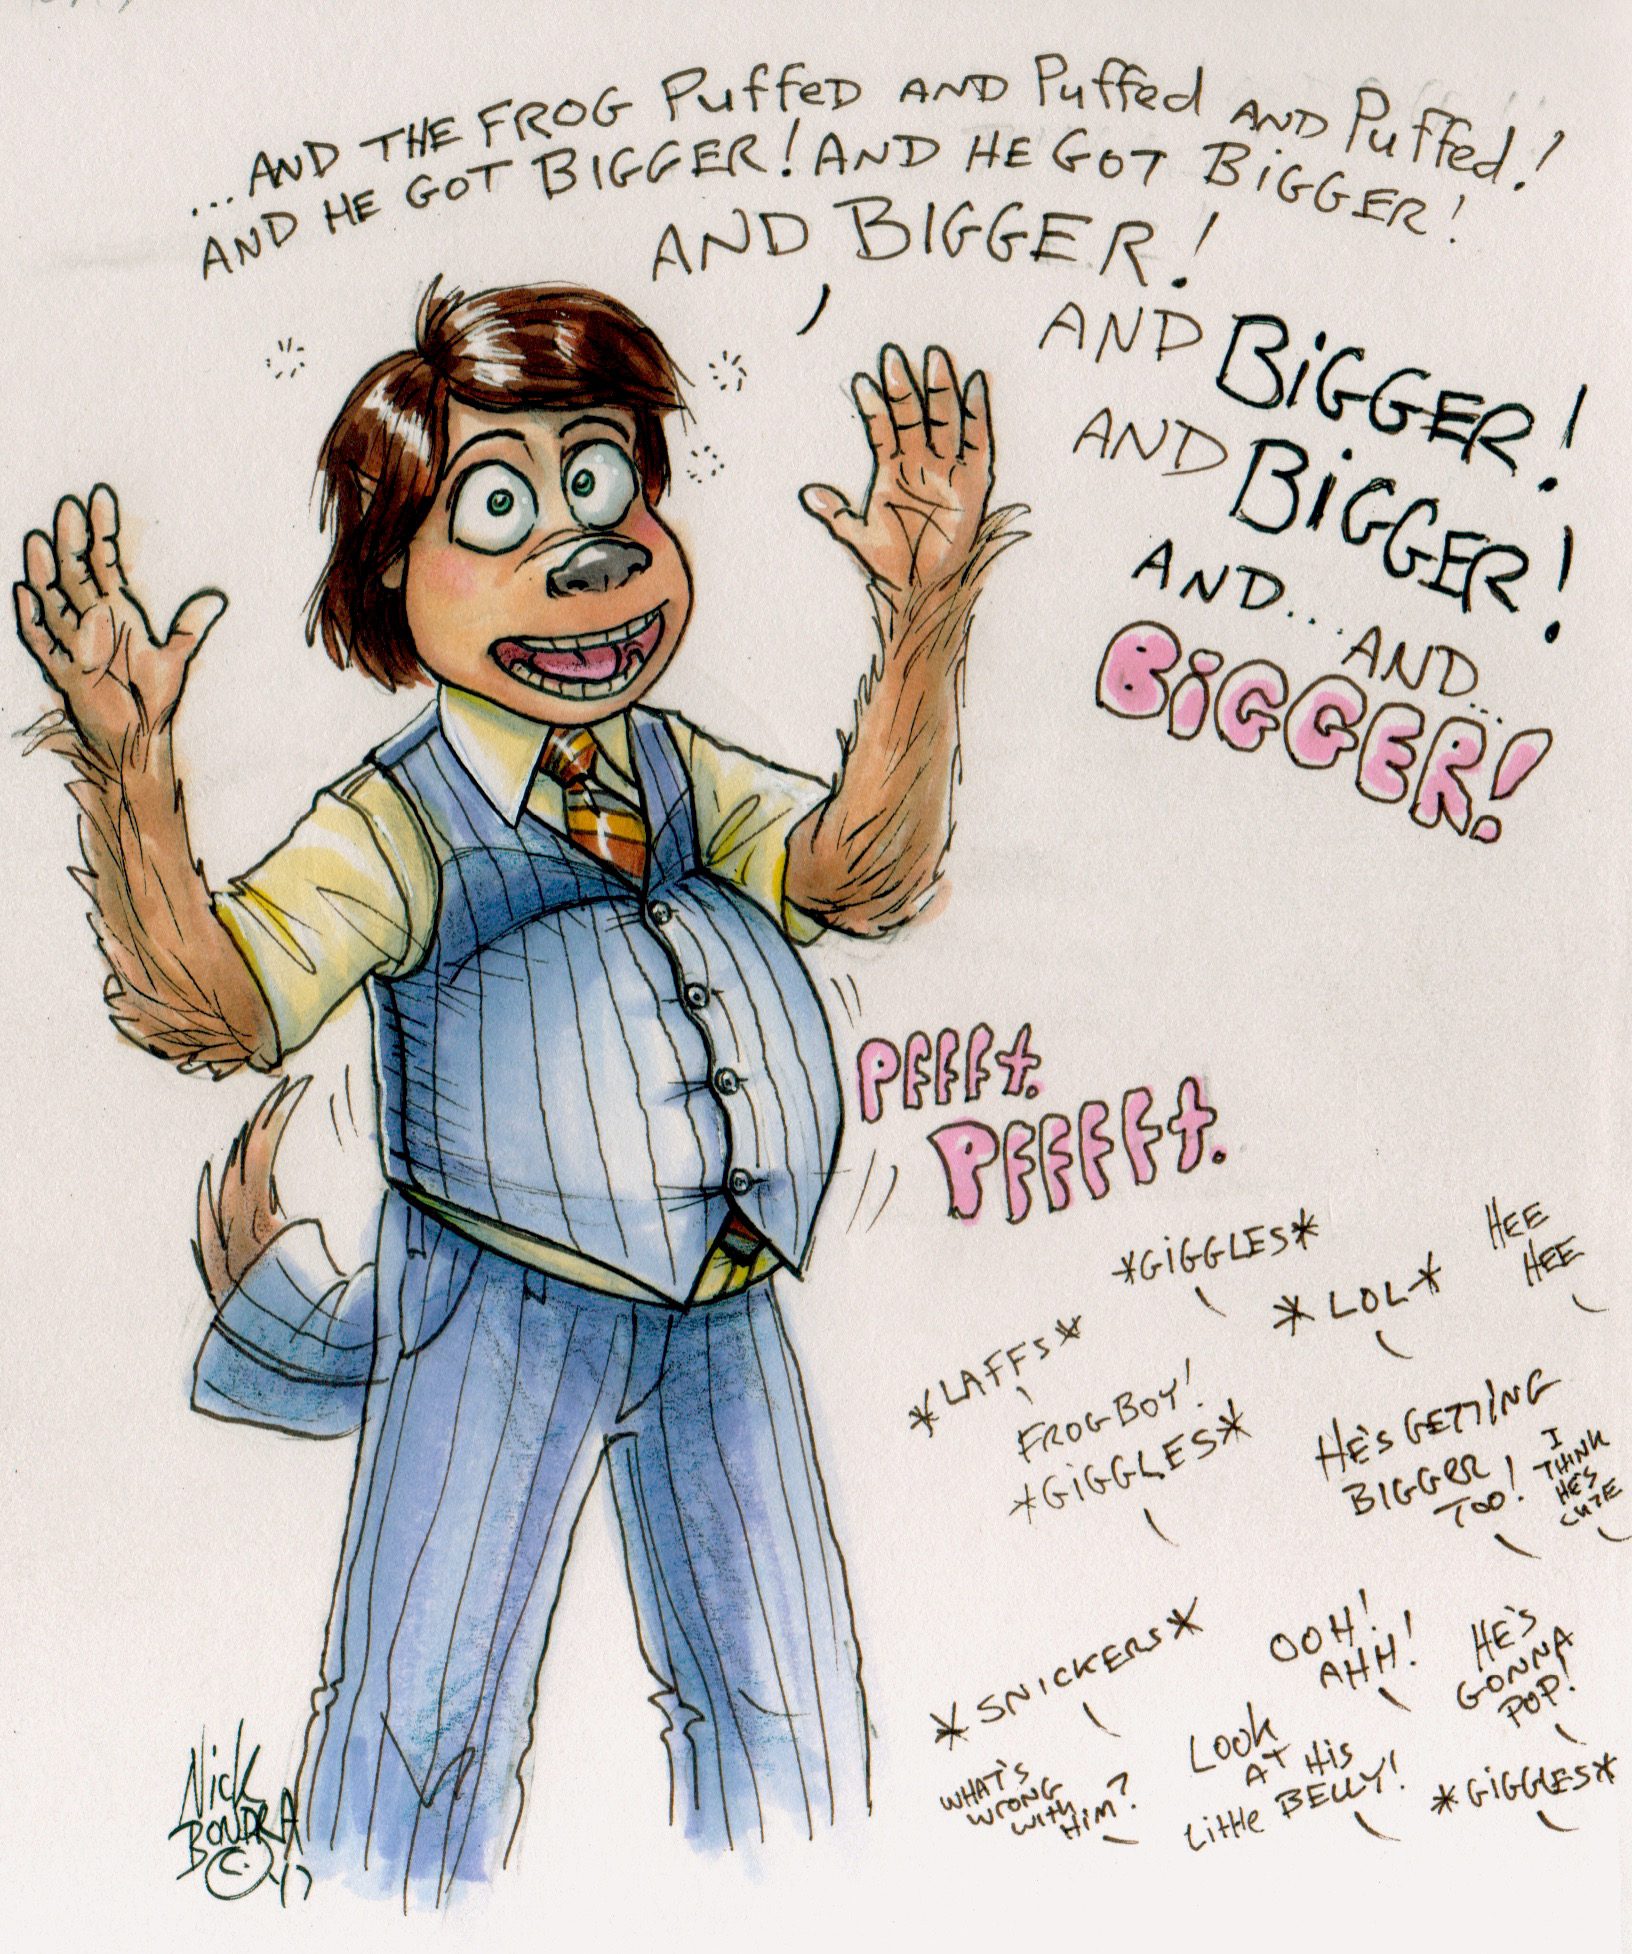 ...AND THE FROG PuffED AND Puffed AND Puffed!
AND HE GOT BIGGER! AND HE GOT BiGGER!
AND BIGGER!
AND BiGGER!
AND BiGGER!
AND... AND...
BiGGER!
PFFFt.
PFFFFFt.
*GiGGLES*
HEE
HEE
*LOL*
*LAFFs*
FROG BOY!
*GiGGLES*
HE'S GETTING
BIGGER
TOO!
I
THINK
HE'S
CUTE
*SNICKERS*
OOH!
AHH!
HE'S
GONNA
POP!
WHAT'S
WRONG
WITH
HIM?
LOOK
AT HIS
Little BELLY!
*GiGGLES*
Nick
BONDRA
©.17